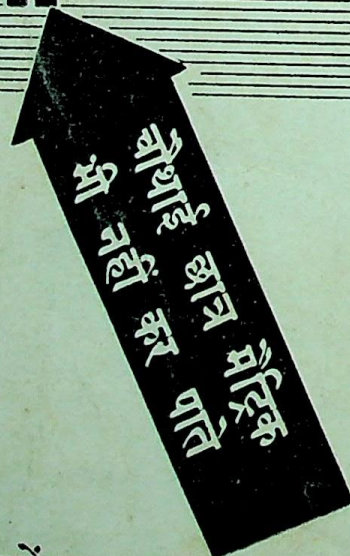 चौथाई छात्र मैट्रिक
भी नहीं कर पाते